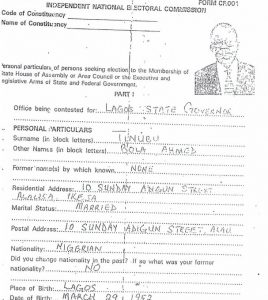 FORM CF.001
INDEPENDENT NATIONAL ELECTORAL COMMISSION
Code of Constituency
Name of Constituency
Personal particulars of persons seeking election to the Membership of
State House of Assembly or Area Council or the Executive and
Legislative Arms of State and Federal Government.
PART I
Office being contested for: LAGOS STATE GOVERNOR
PERSONAL PARTICULARS
Surname (in block letters) TINUBU
Other Names (in block letters) BOLA AHMED
Former name(s) by which known. NONE
Residential Address: 10 SUNDAY ADIGUN STREET
ALAUSA, IKEJA
Marital Status: MARRIED
Postal Address: 10 SUNDAY ADIGUN STREET, ALAU
Nationality: NIGERIAN
Did you change nationality in the past? If so what was your former
nationality? NO
Place of Birth: LAGOS
Date of Birth: MARCH 29, 1952